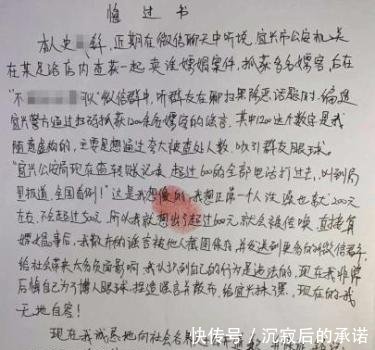 悔过书
本人史 群,近期在微信聊天中听说,宜兴市公安机关
在某足浴店内查获一起卖淫嫖娼案件,抓获多名嫖客,后在
"不 队"微信群中,听群友在聊扫黑除恶话题时,编造
宜兴警方通过扫码抓获1200余名嫖客的谣言。其中1200这个数字是我
随意虚构的,主要是想通过夸大被查处人数,吸引群友眼球。
"宜兴公安局现在查转账记录,超过600的全部电话打过去,叫到局
里报道,全国首例!"这是我想像的,我想正常一个人洗澡也就200元
左右,不会超过500元,所以我就想出了超过600元就会被传唤,直接负
嫖娼。事后,我散布的谣言被他人截图保存,并发送到更多的微信群里,
给社会带来大的负面影响,我认识到自己的行为是违法的,现在我非常
后悔自己为了博人眼球,捏造谣言并散布,给宜兴抹黑,现在的我
无地自容!
现在我诚恳地向社会各界
快传号/沉寂后的承诺